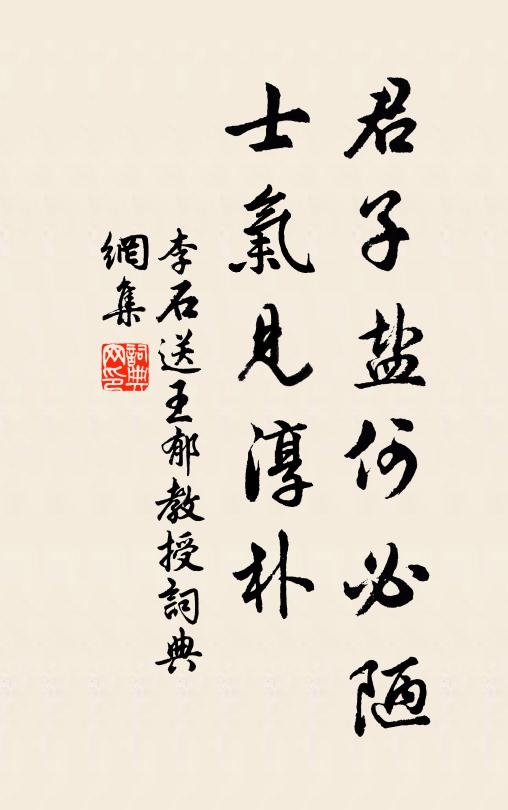 君子盐何必陋
士氣見淳朴
李石送王郁教授詞典
網集
詞典
网印